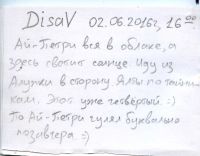 DisaV 02.06.2016г, 16 00
Ай-Петри вся в облаке, а
здесь светит солнце. Иду из
Алупки в сторону Ялты по тайни-
кам. Этот уже четвёртый. :)
По Ай-Петри гулял буквально
позавчера =)